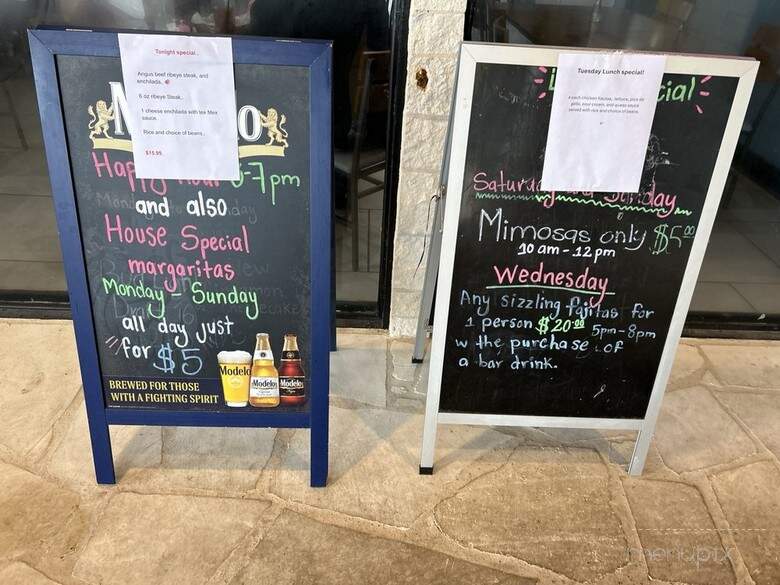 Tonight special..
Angus beef ribeye steak, and
enchilada.
6 oz ribeye Steak..
1 cheese enchilada with tex Mex
sauce.
Rice and choice of beans..
$15.99.
Happy Hour 3-7pm
and also
House Special
margaritas
Monday - Sunday
all day just
for $5
Modelo
Modelo
Modelo
BREWED FOR THOSE
WITH A FIGHTING SPIRIT
Tuesday Lunch special!
served with rice and choice of beans.
Saturday and Sunday
Mimosas only $5.00
10 am - 12 pm
Wednesday
Any sizzling fajitas for
1 person $20.00 5pm-8pm
w the purchase of
a bar drink.
menupix